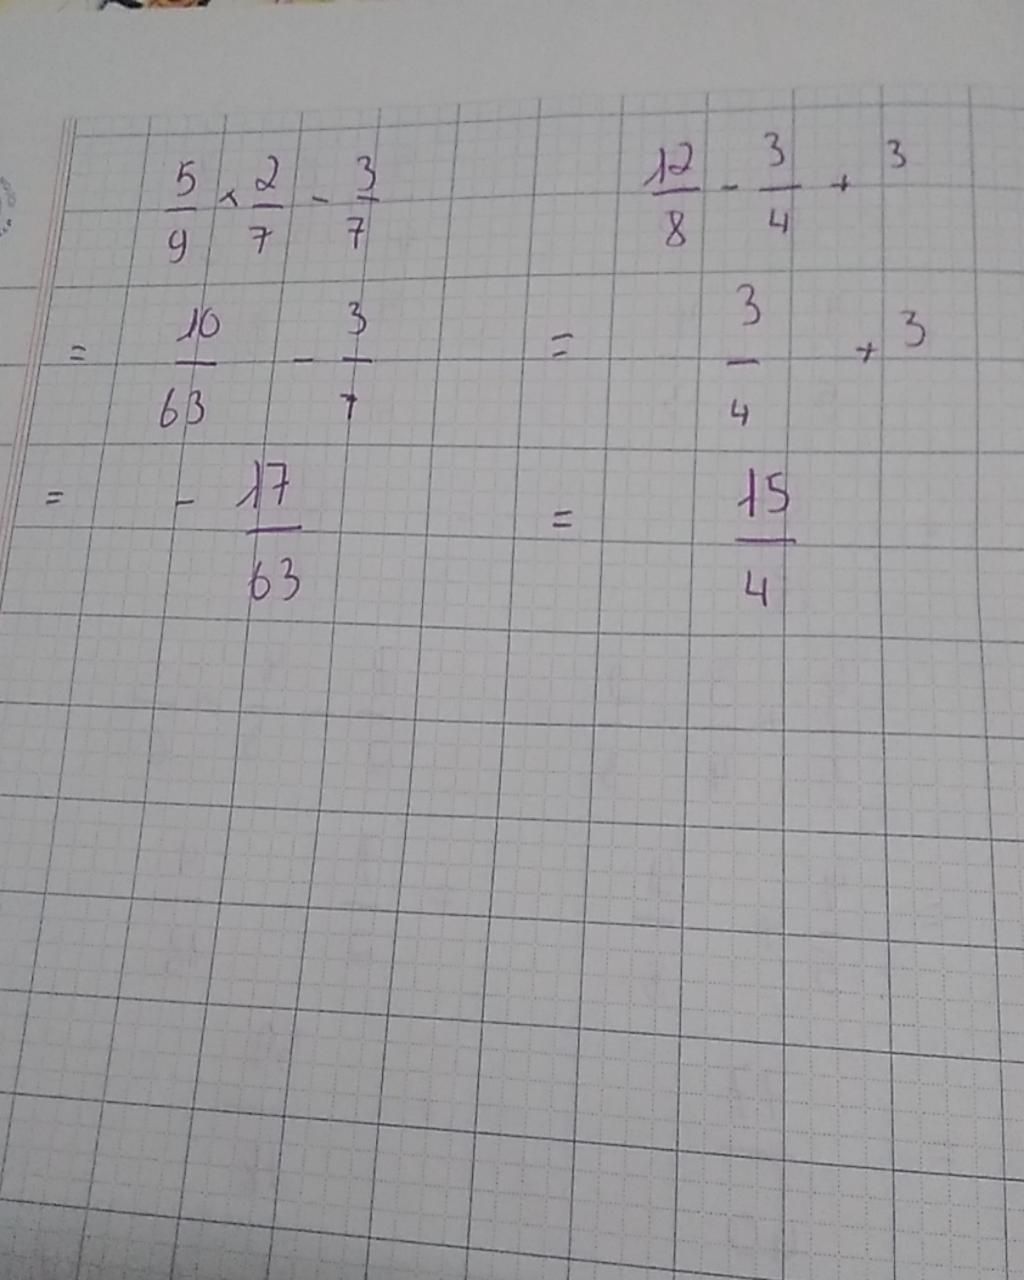 5/9 × 2/7 - 3/7
= 10/63 - 3/7
= - 17/63
12/8 - 3/4 + 3
= 3/4 + 3
= 15/4